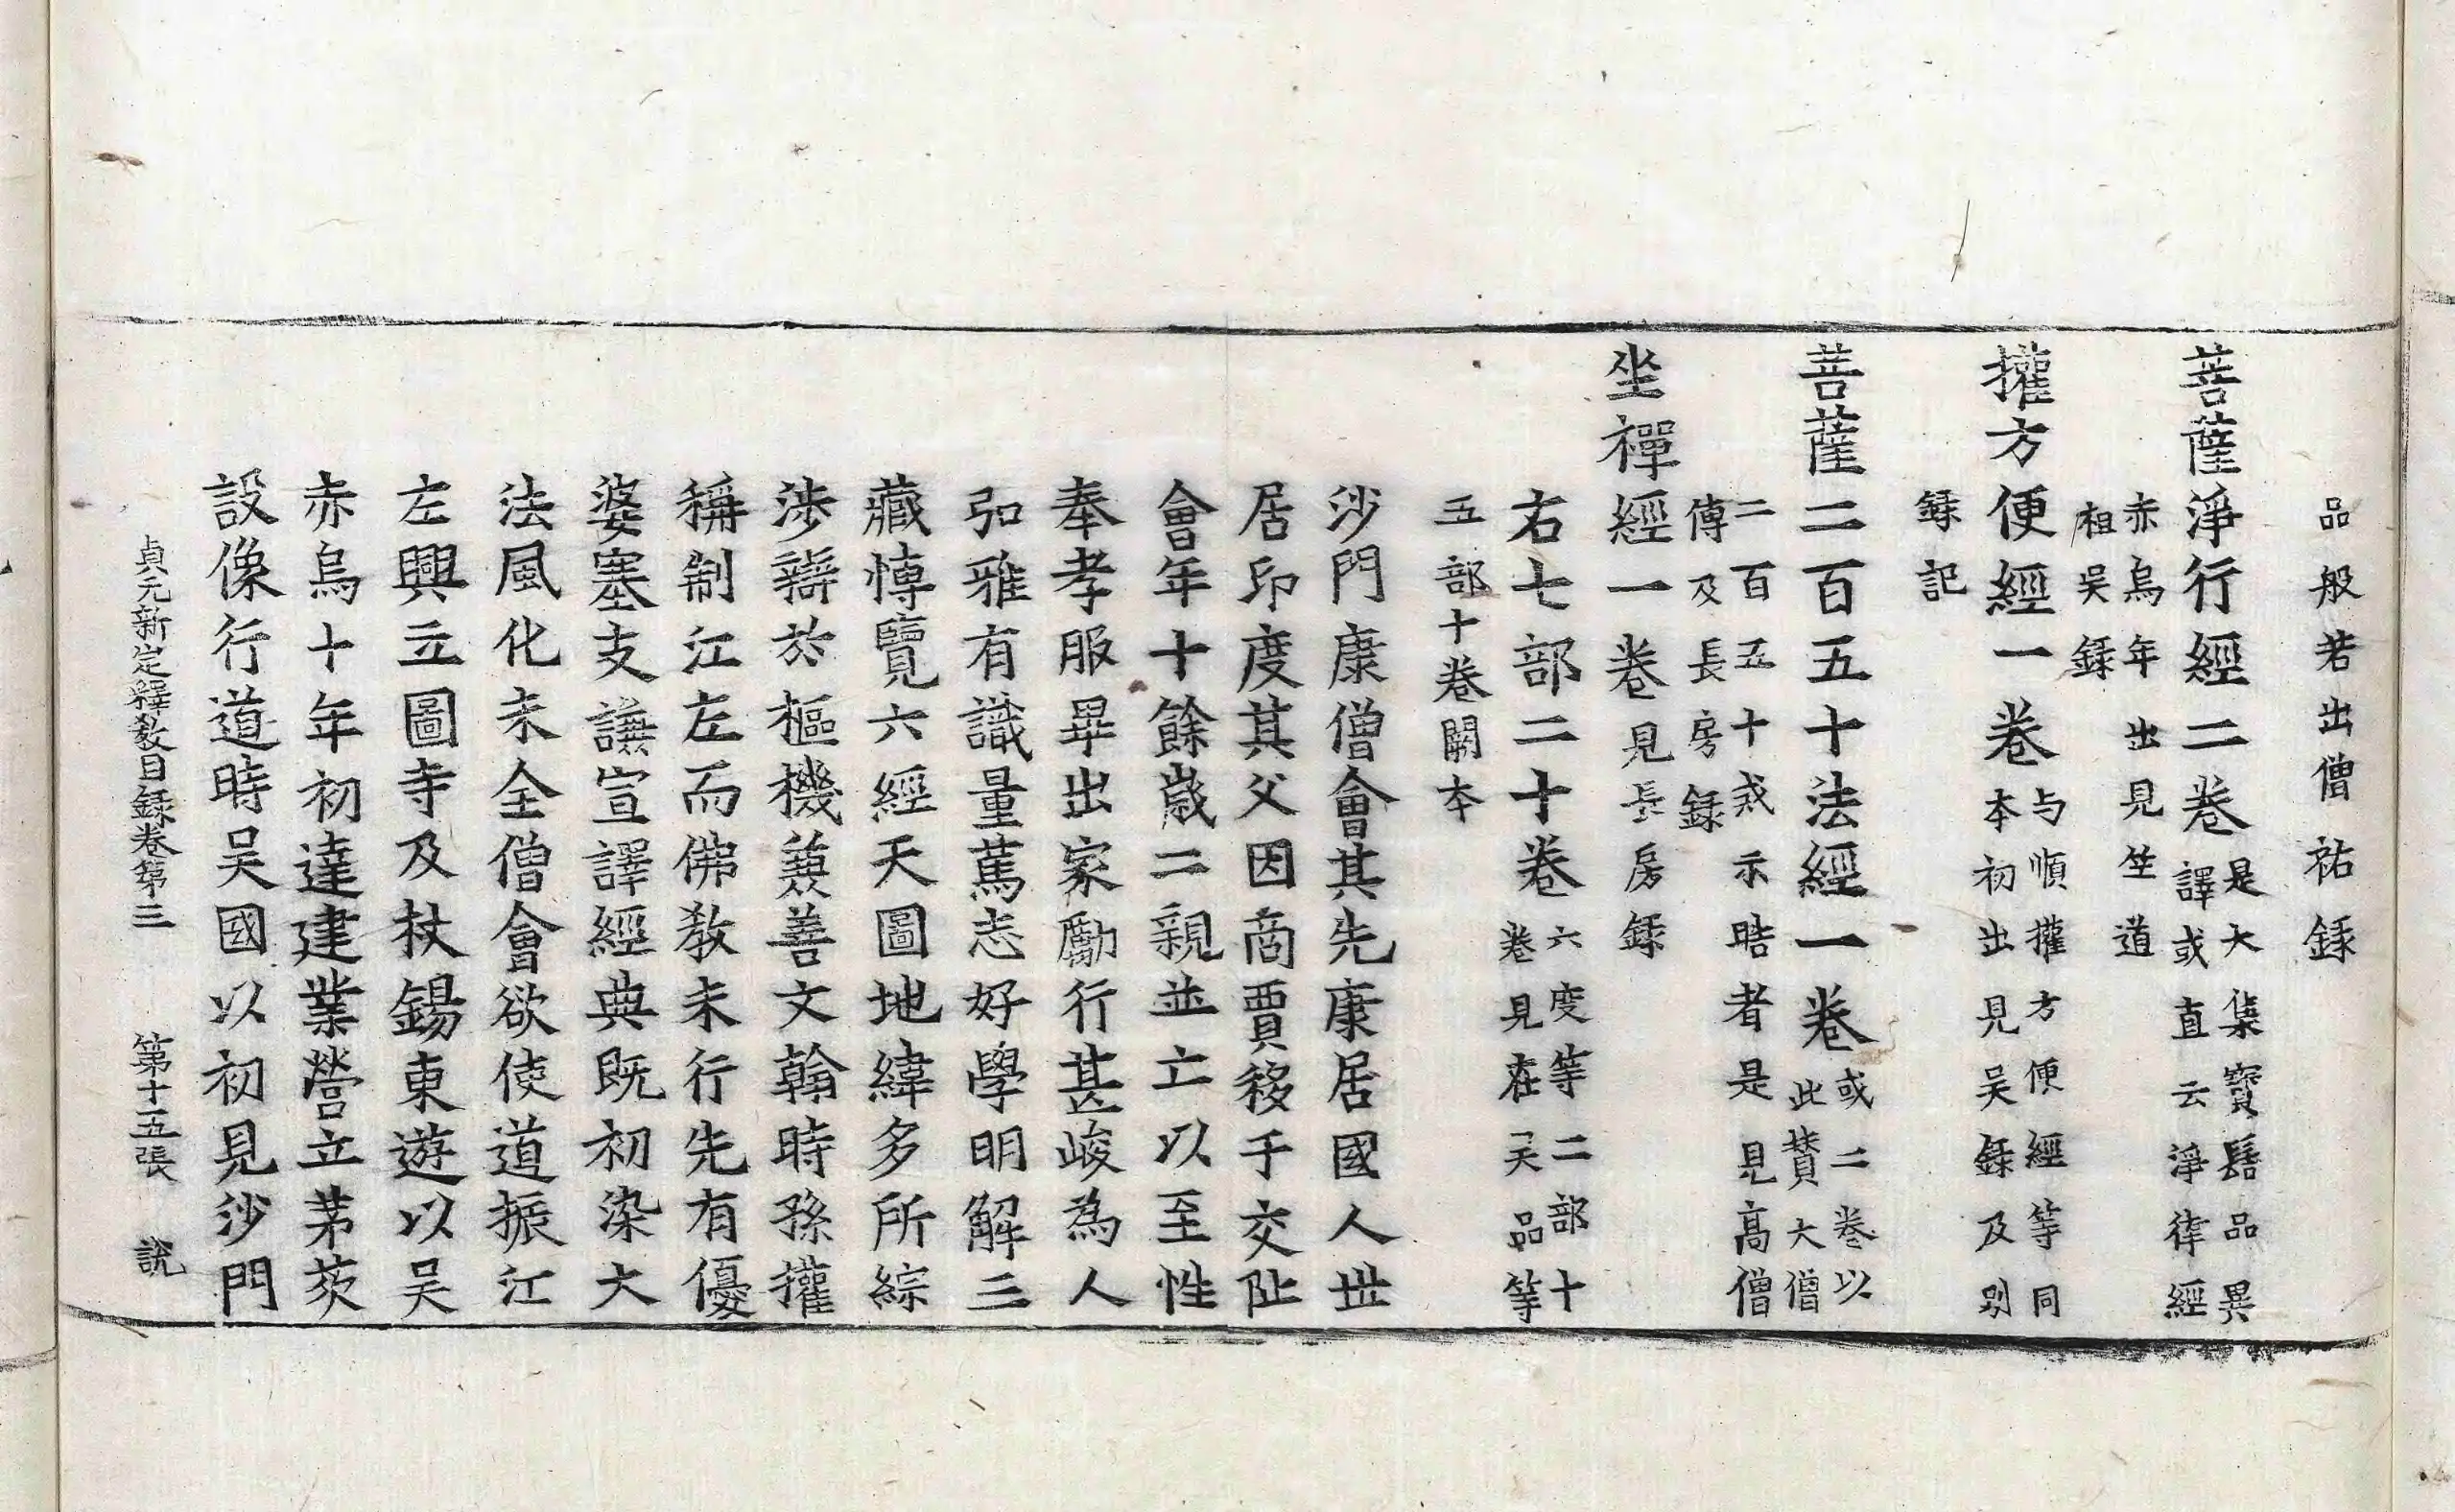 品般若出僧祐録
菩薩淨行經二卷是大集寶髻品異
譯或直云淨律經
赤烏年出見竺道
祖吳録
權方便經一卷与順權方便經等同
本初出見吳録及別
録記
菩薩二百五十法經一卷或二卷以
此贊大僧
二百五十戒示晧者是見高僧
傳及長房録
坐禪經一卷見長房録
右七部二十卷六度等二部十
卷見在吳品等
五部十卷闕本
沙門康僧會其先康居國人世
居印度其父因商賈移于交阯
會年十餘歲二親並亡以至性
奉孝服畢出家勵行甚峻為人
弘雅有識量篤志好學明解三
藏博覽六經天圖地緯多所綜
涉辯於樞機兼善文翰時孫權
稱制江左而佛教未行先有優
婆塞支謙宣譯經典既初染大
法風化未全僧會欲使道振江
左興立圖寺及杖錫東遊以吳
赤烏十年初達建業營立茅茨
設像行道時吳國以初見沙門
貞元新定釋教目録卷第三　第十五張　說